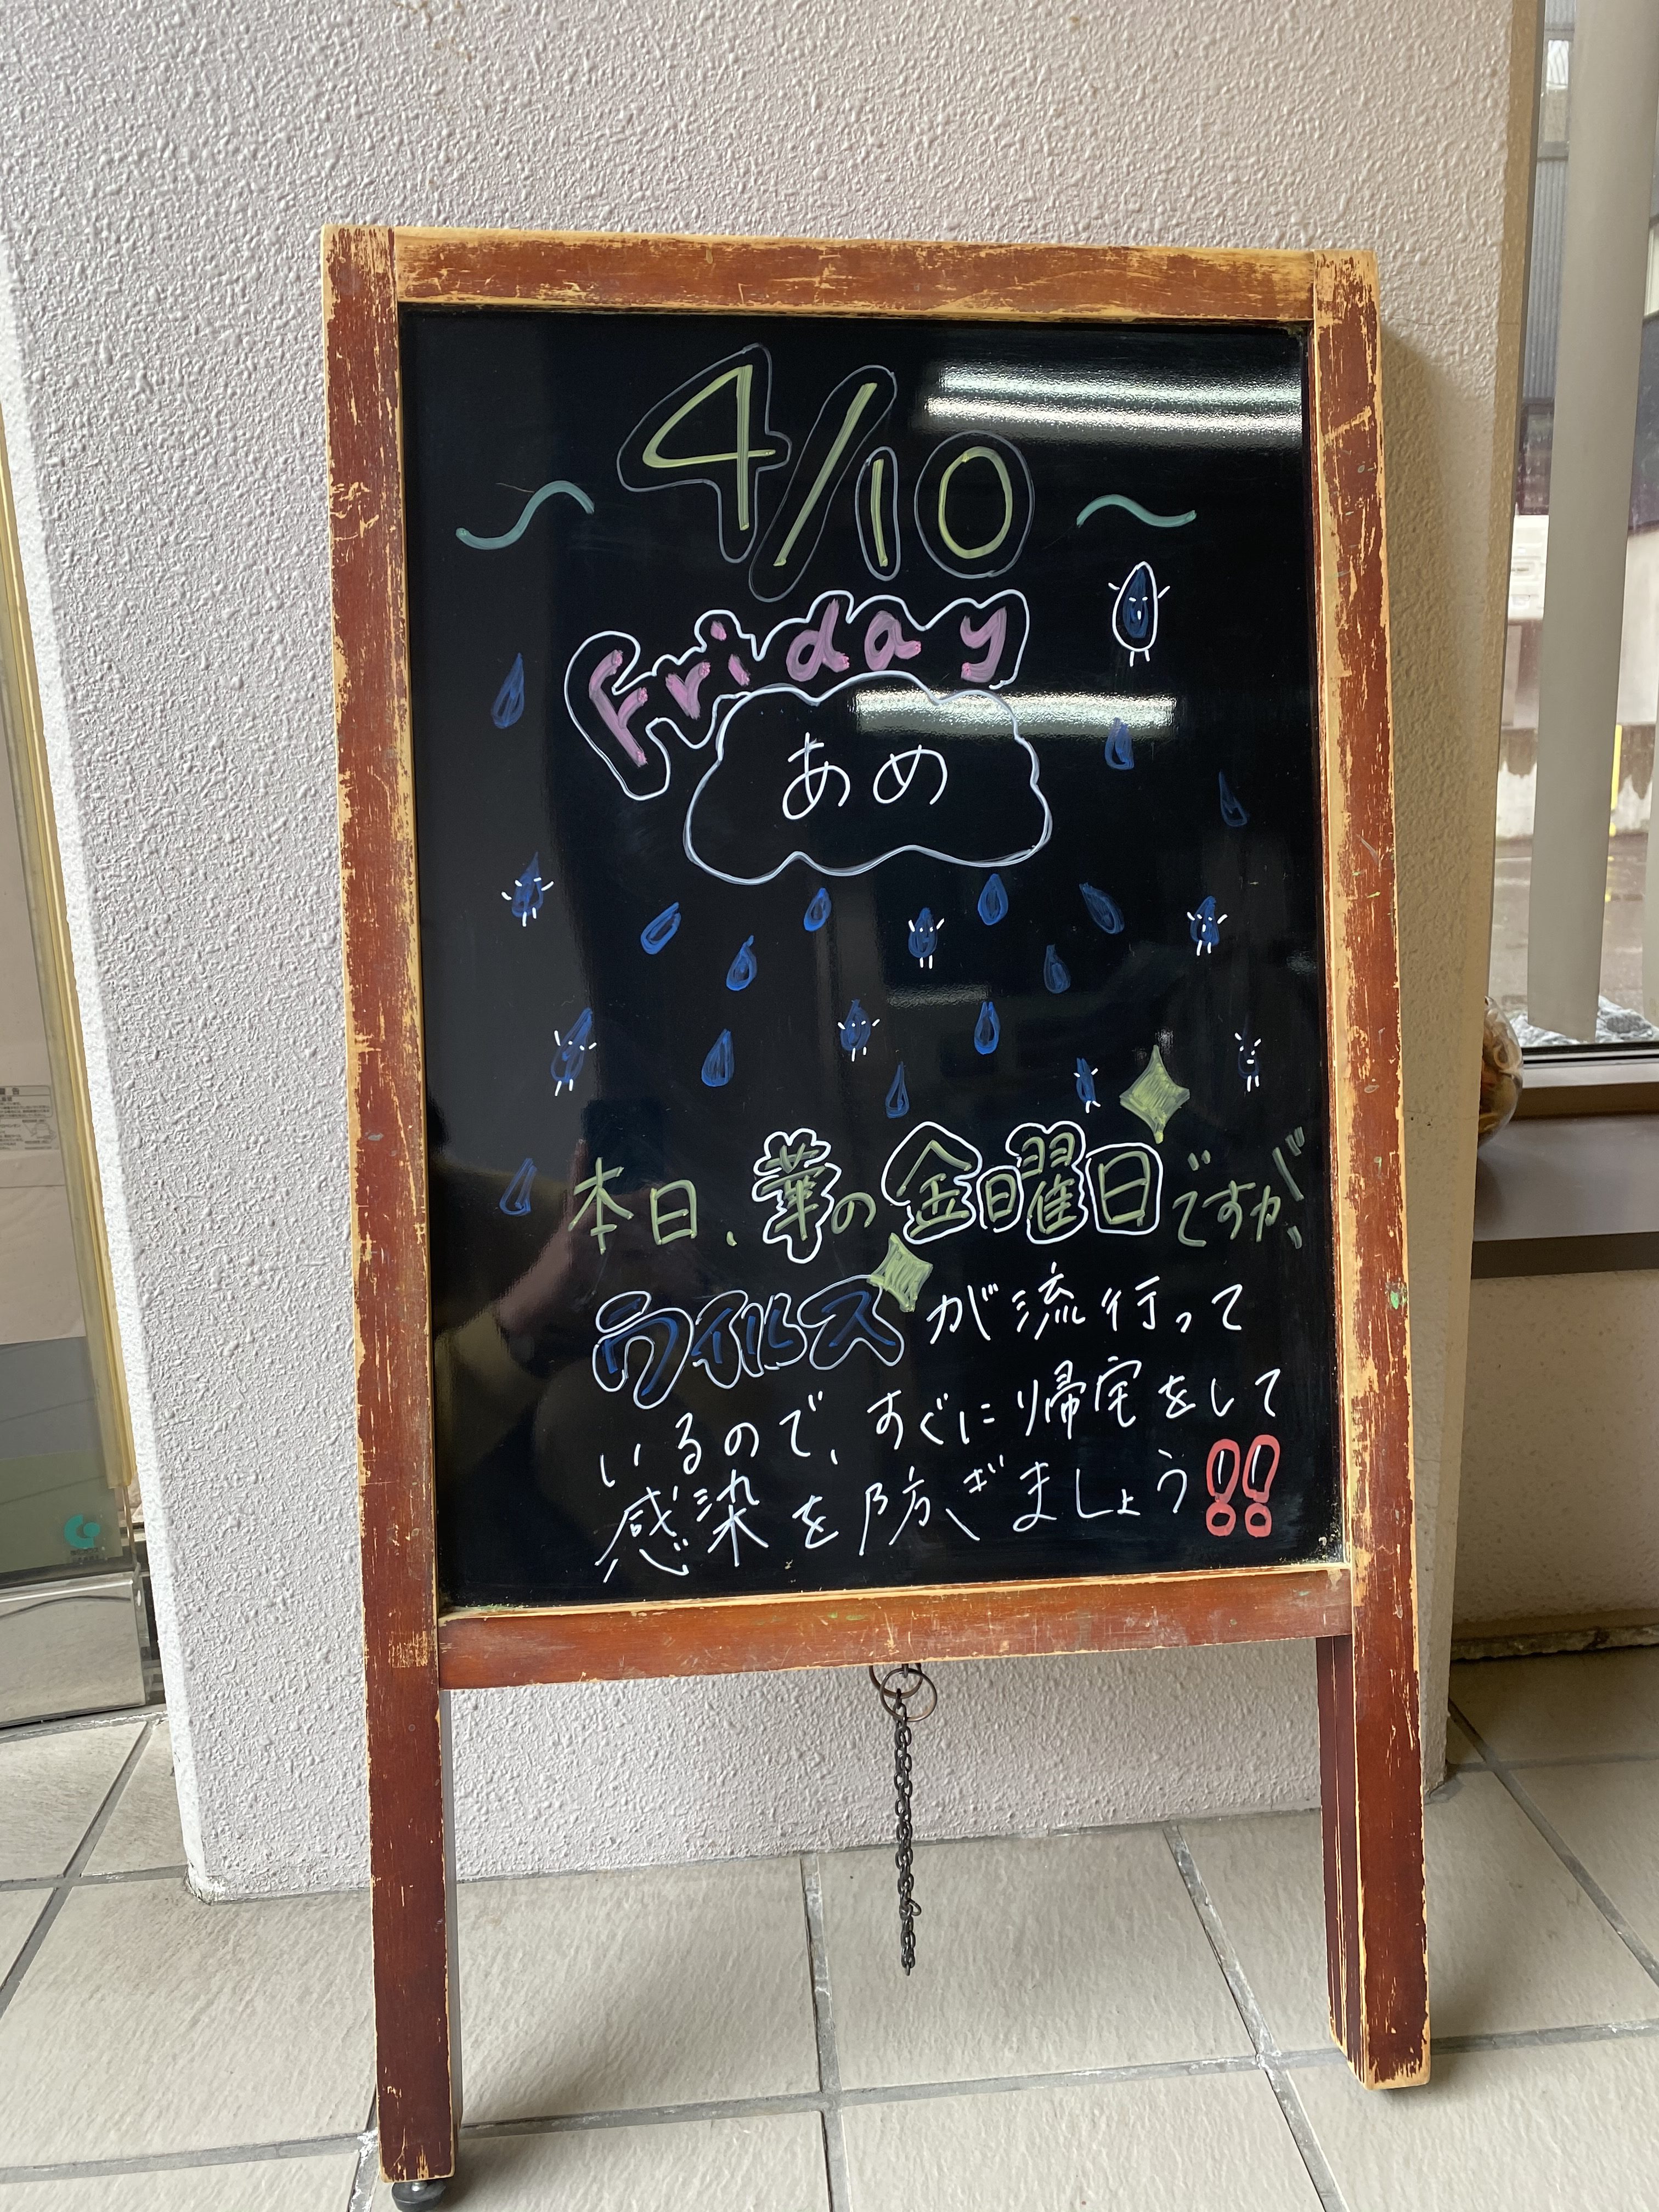 4/10
Friday
あめ
本日、華の金曜日ですが、
ウイルスが流行って
いるので、すぐに帰宅をして
感染を防ぎましょう!!